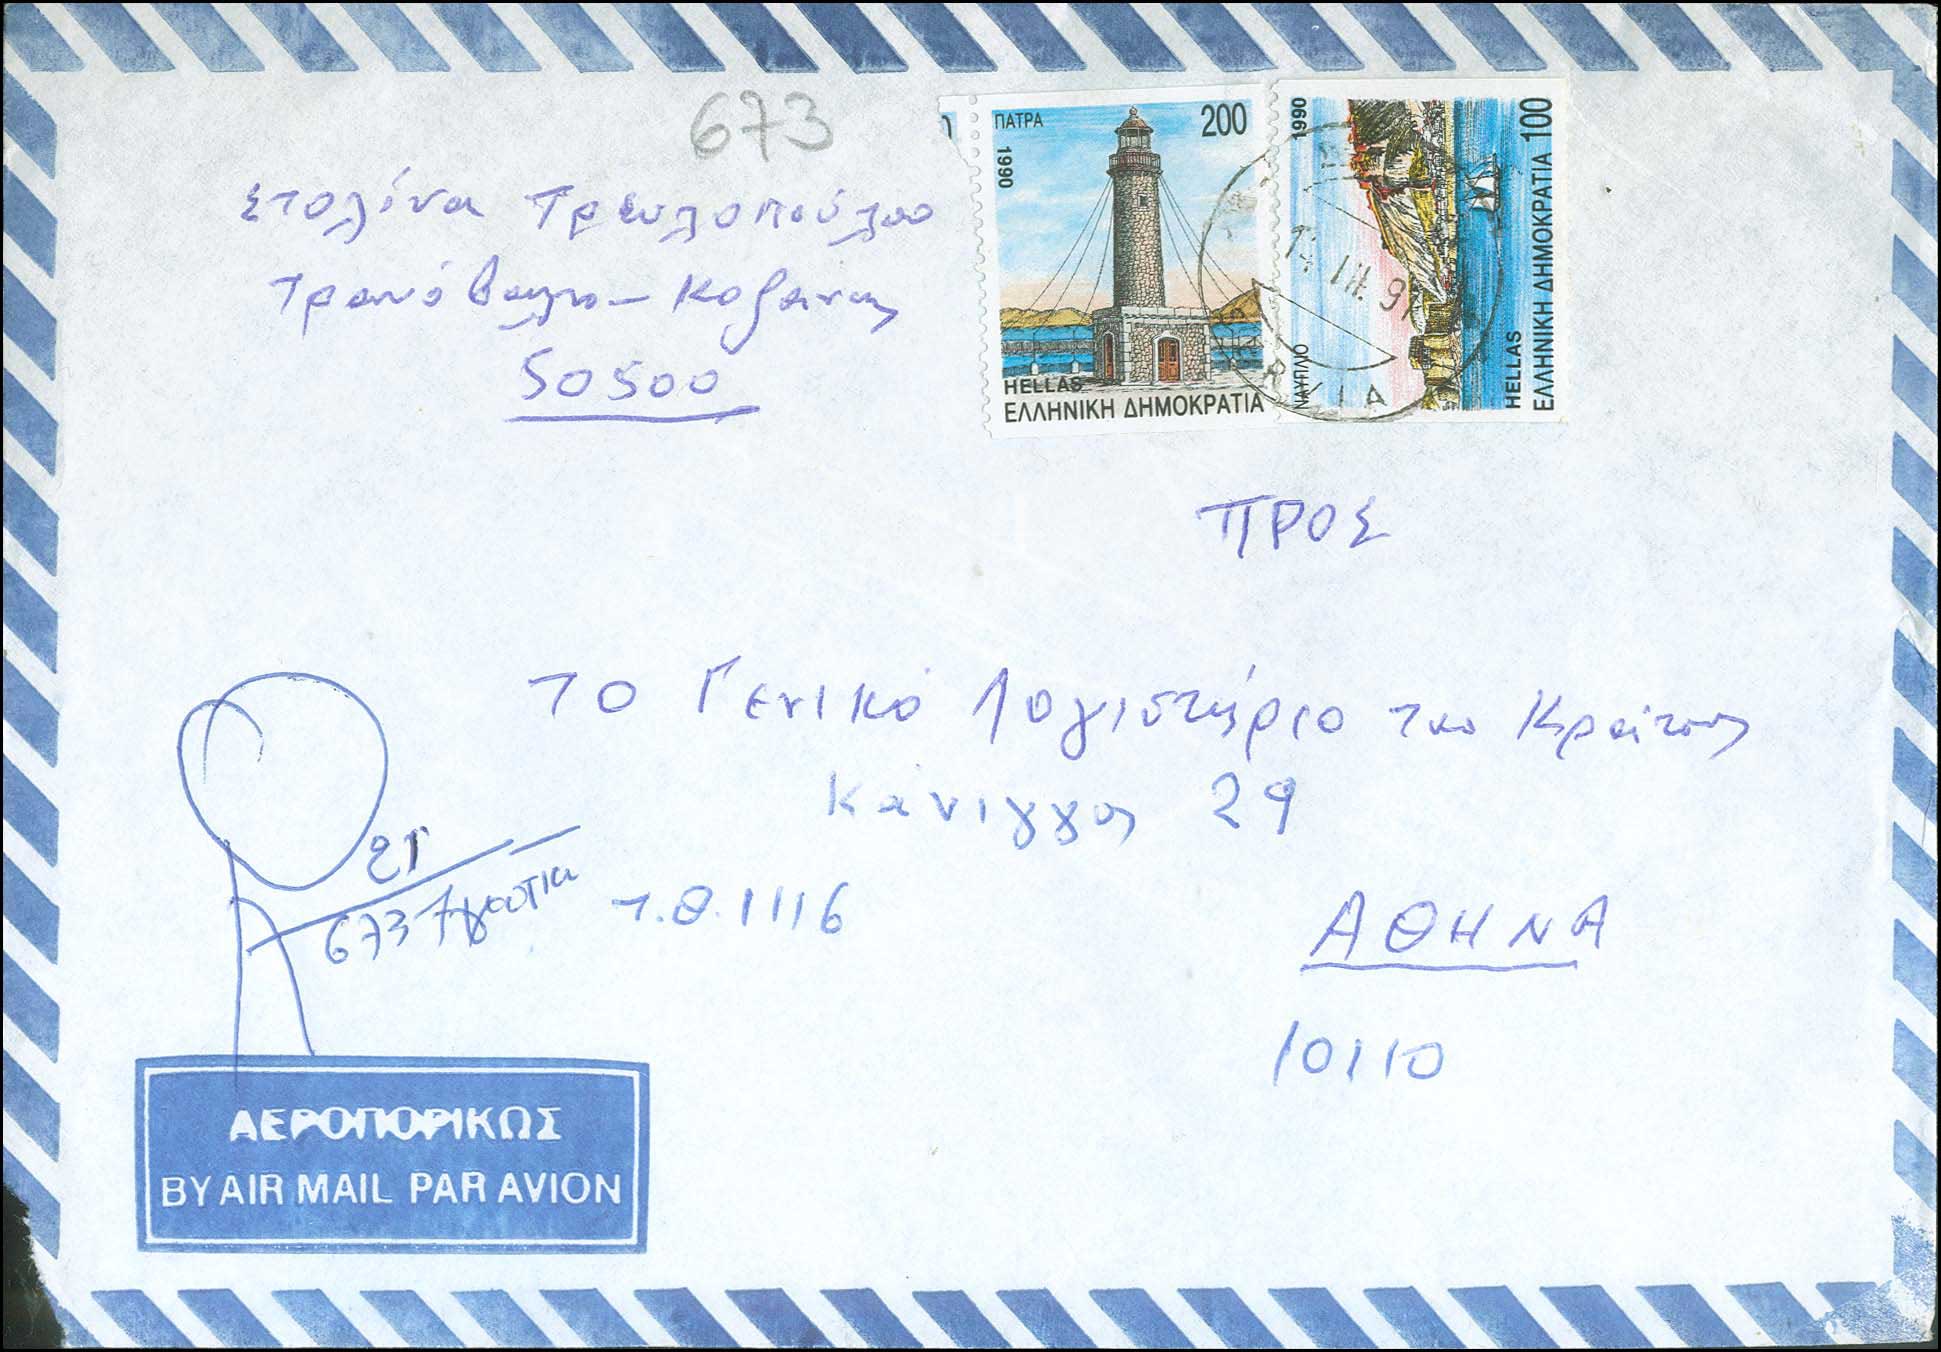 673
Στολίνα Τρευλοπούλου
Τρανόβαλτο - Κοζάνης
50500
ΠΑΤΡΑ 200
1990
HELLAS
ΕΛΛΗΝΙΚΗ ΔΗΜΟΚΡΑΤΙΑ
1990 100
ΝΑΥΠΛΙΟ
HELLAS
ΕΛΛΗΝΙΚΗ ΔΗΜΟΚΡΑΤΙΑ
ΠΡΟΣ
ΤΟ Γενικό Λογιστήριο του Κράτους
Κάνιγγος 29
R
673
Τ.Θ. 1116
ΑΘΗΝΑ
10110
ΑΕΡΟΠΟΡΙΚΩΣ
BY AIR MAIL PAR AVION